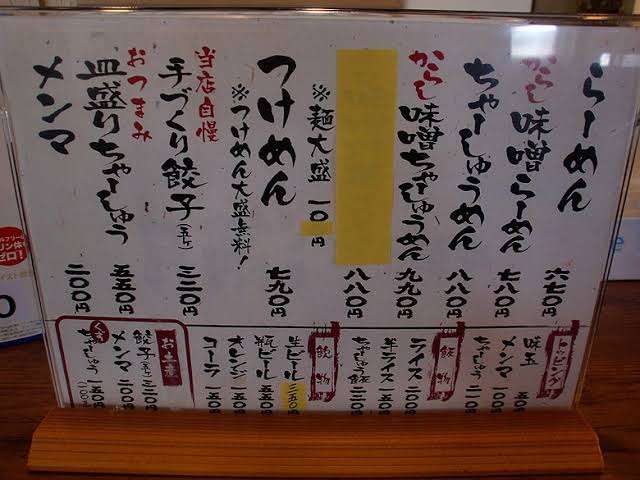 らーめん 六七〇円
からし味噌らーめん 七八〇円
ちゃーしゅうめん 八八〇円
からし味噌ちゃーしゅうめん 九九〇円
八八〇円
※麺大盛 一〇円
つけめん 七九〇円
※つけめん大盛無料!
当店自慢
手づくり餃子(五ヶ) 三二〇円
おつまみ
皿盛りちゃーしゅう 五五〇円
メンマ 二〇〇円
トッピング
味玉 五〇
メンマ 一〇〇
ちゃーしゅう 二〇〇
飯物
ライス 二〇〇
半ライス 一五〇
ちゃーしゅう飯 三二〇
飲物
生ビール 三五〇
瓶ビール 五五〇
オレンジ 一五〇
コーラ 二〇〇
お土産
餃子(五ヶ) 三二〇
メンマ 二〇〇
ちゃーしゅう 一五〇
ゼロ!